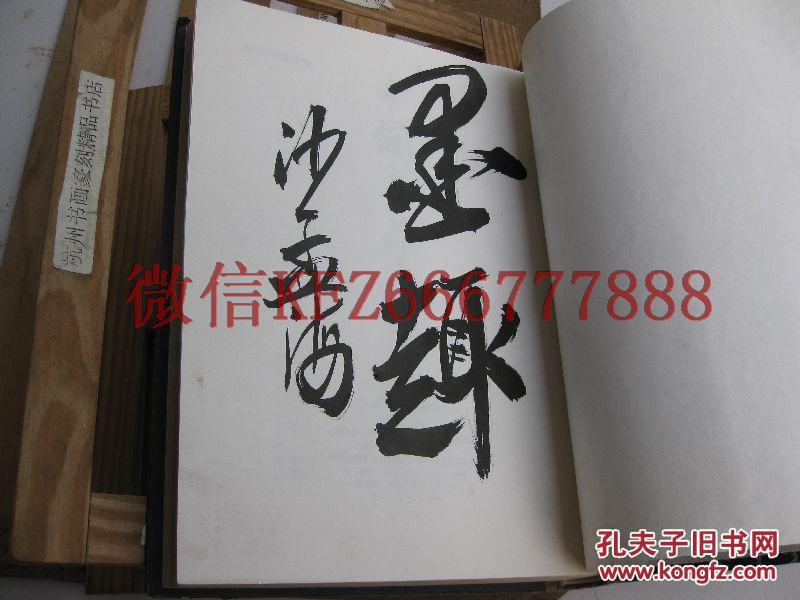 墨趣
沙孟海
微信KFZ666777888
杭州书画篆刻精品书店
孔夫子旧书网
www.kongfz.com